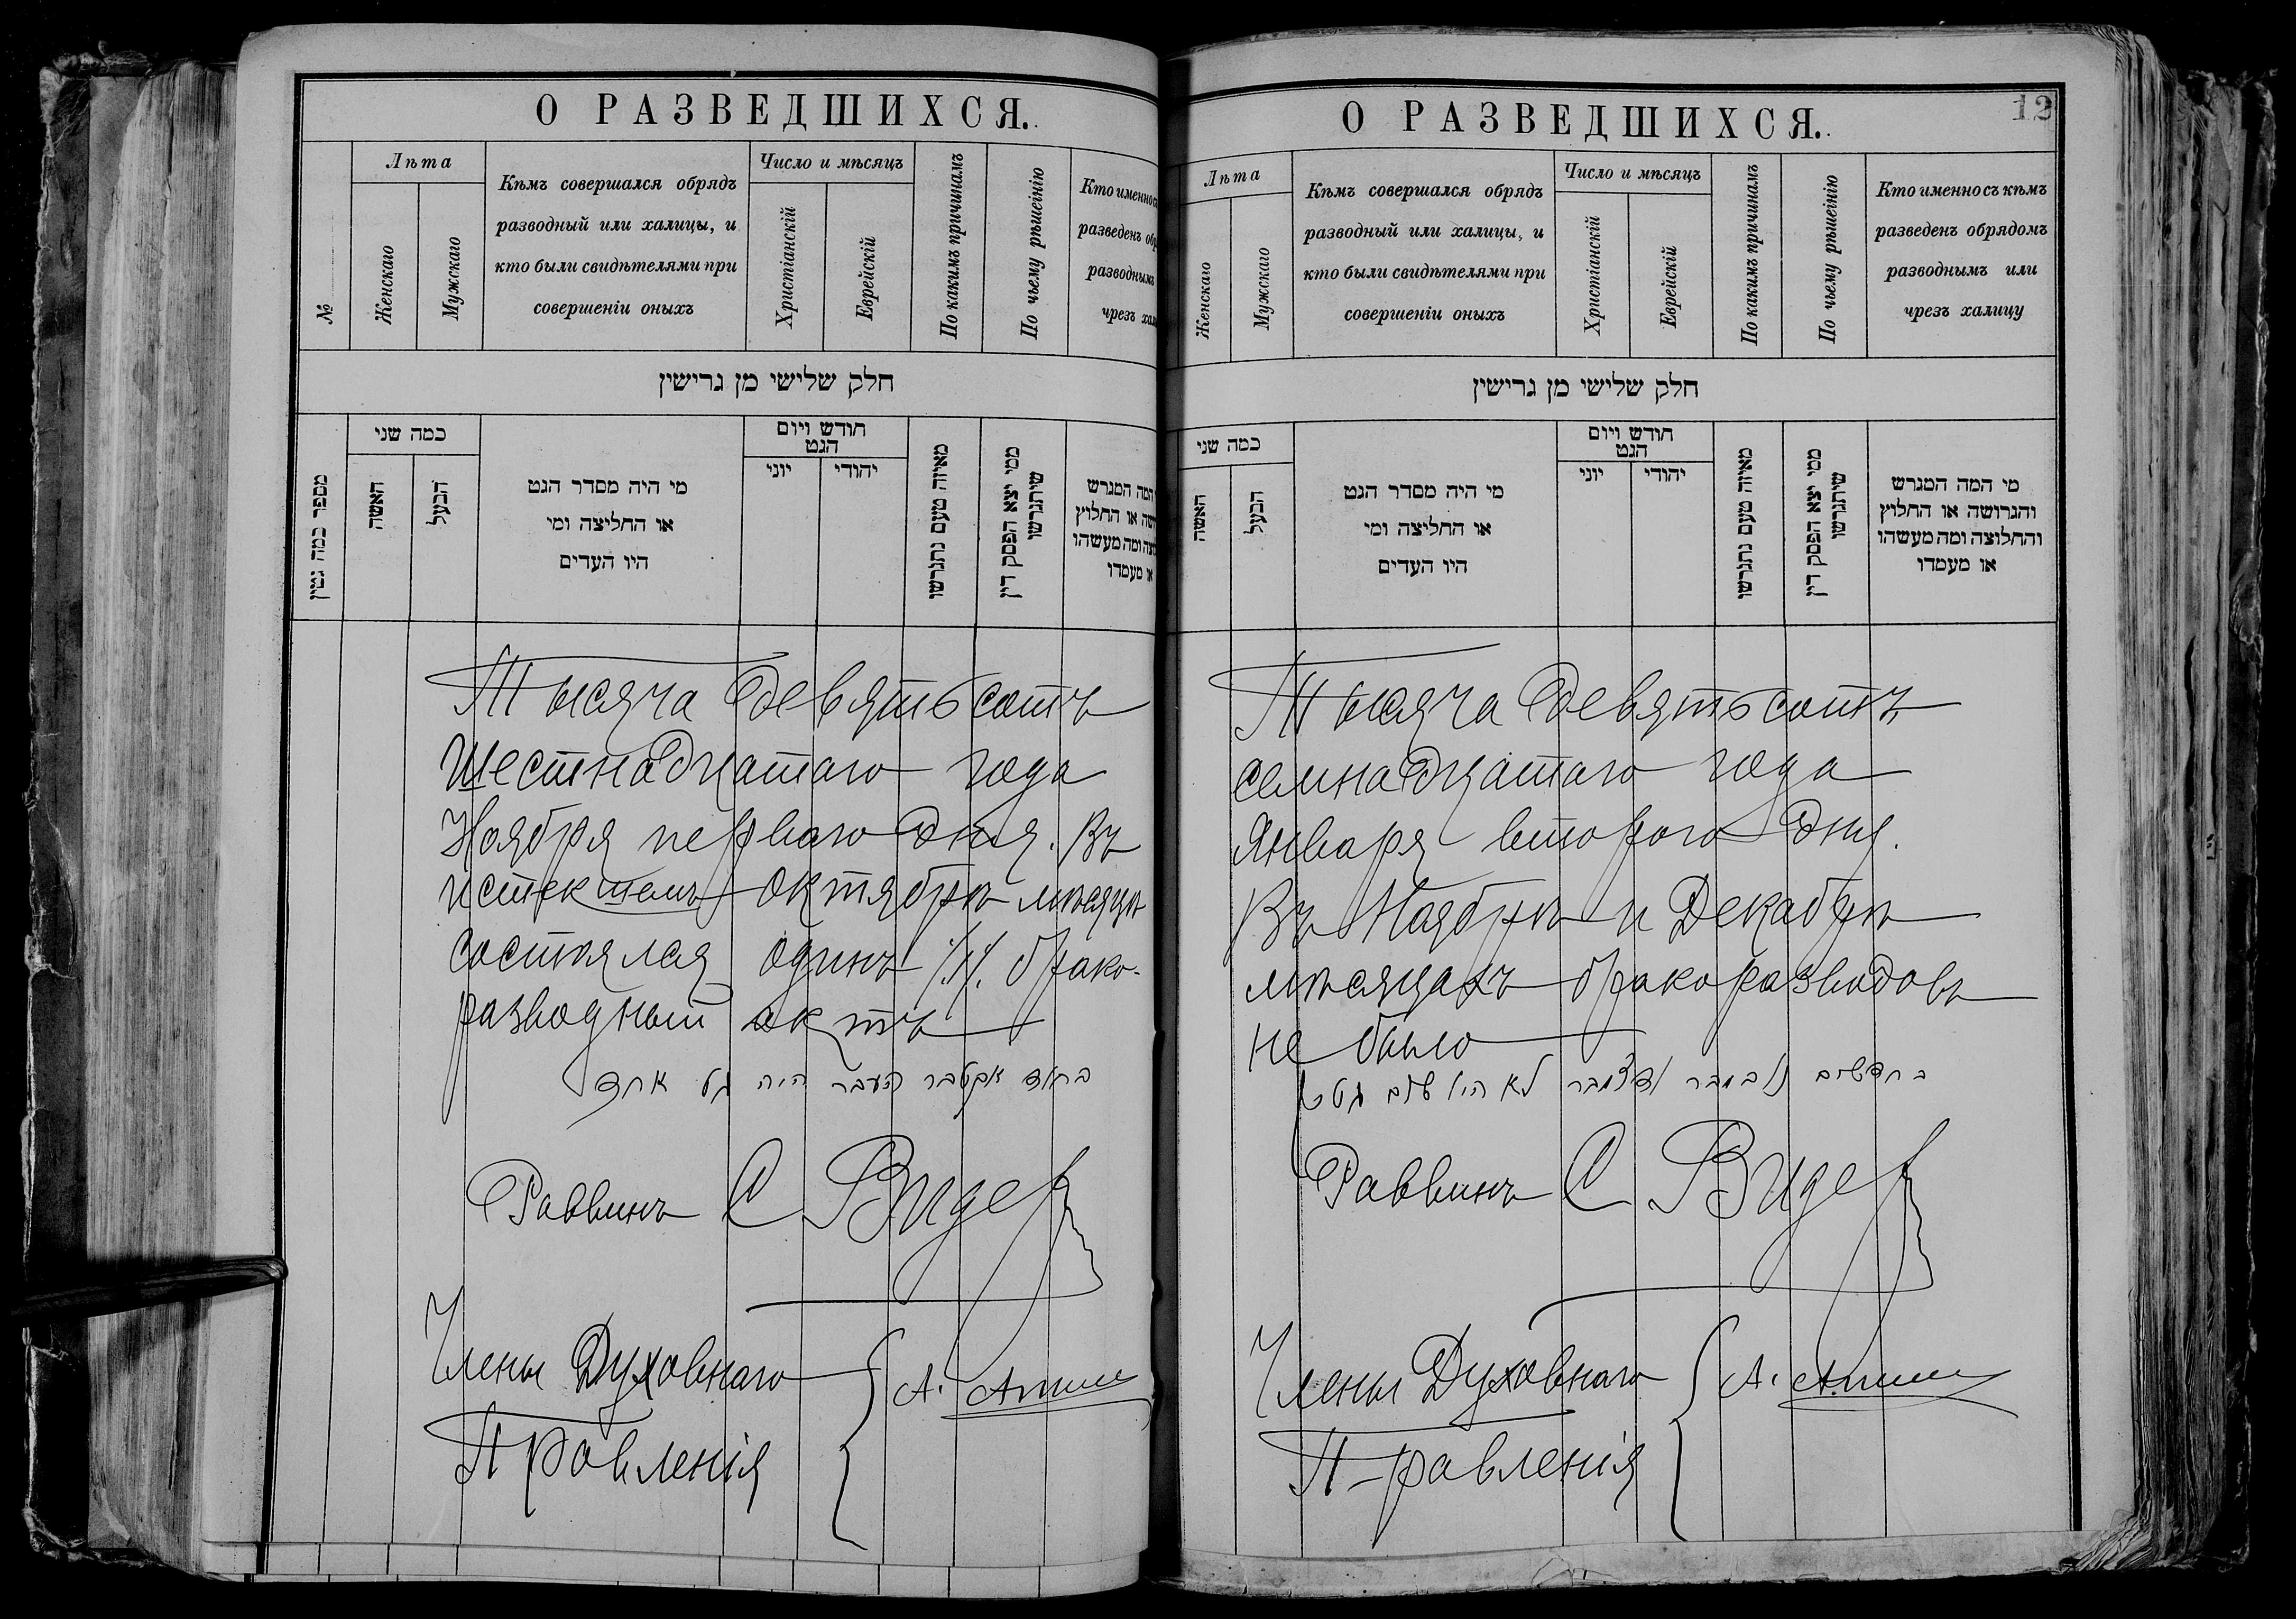 О РАЗВЕДШИХСЯ.
№
Лѣта
Женскаго
Мужскаго
Кѣмъ совершался обрядъ
разводный или халицы, и
кто были свидѣтелями при
совершеніи оныхъ
Число и мѣсяцъ
Христіанскій
Еврейскій
По какимъ причинамъ
По чьему рѣшеінію
Кто именно съ
разведенъ обр
разводнымъ
чрезъ хал
חלק שלישי מן גרישין
מספר כמה גיטין
כמה שני
האשה
הבעל
מי היה מסדר הגט
או החליצה ומי
היו העדים
חודש ויום
הגט
יוני
יהודי
מאיזה טעם נתגרשו
ממי יצא הפסק דין
שיתגרשו
המה המגרש
שה או החלוץ
צה ומה מעשהו
או מעמדו
Тысяча девятьсотъ
шестнадцатаго года
Ноября перваго дня. Въ
истекшемъ октябрѣ мѣсяцѣ
состоялся одинъ /1/ брако-
разводный актъ
בחודש אקטבר העבר היה גט אחד
Раввинъ С Видер
Члены Духовнаго
Правленія
А.
О РАЗВЕДШИХСЯ.
12
Лѣта
Женскаго
Мужскаго
Кѣмъ совершался обрядъ
разводный или халицы, и
кто были свидѣтелями при
совершеніи оныхъ
Число и мѣсяцъ
Христіанскій
Еврейскій
По какимъ причинамъ
По чьему рѣшеінію
Кто именно съ кѣмъ
разведенъ обрядомъ
разводнымъ или
чрезъ халицу
חלק שלישי מן גרישין
כמה שני
האשה
הבעל
מי היה מסדר הגט
או החליצה ומי
היו העדים
חודש ויום
הגט
יוני
יהודי
מאיזה טעם נתגרשו
ממי יצא הפסק דין
שיתגרשו
מי המה המגרש
והגרושה או החלוץ
והחלוצה ומה מעשהו
או מעמדו
Тысяча девятьсотъ
семнадцатаго года
Января второго дня.
Въ Ноябрѣ и Декабрѣ
мѣсяцахъ бракоразводовъ
не было
בחדשים נובמבר ודצמבר לא היו שום גטין
Раввинъ С Видер
Члены Духовнаго
Правленія
А.